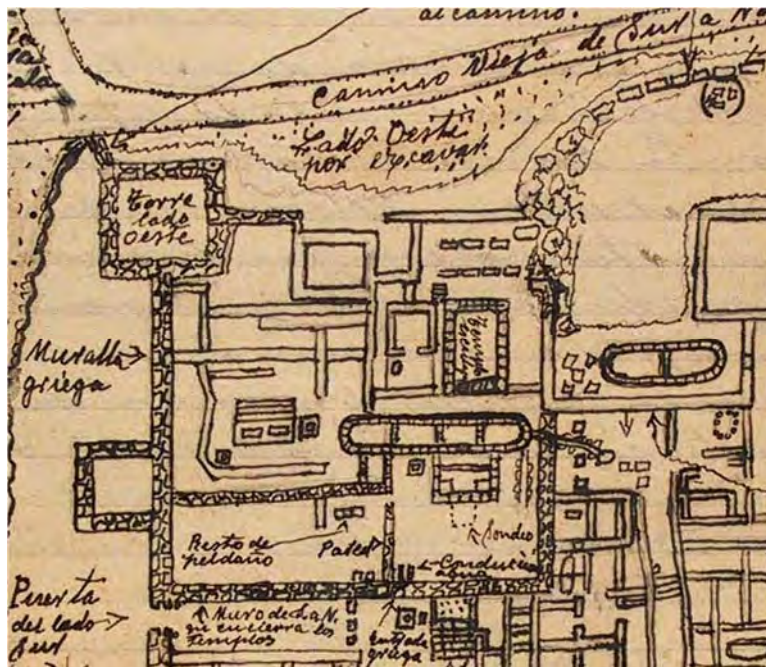 al camino.
Camino Viejo de Sur a No
Lado Oeste
por excavar
Torre
lado
Oeste
Muralla
griega
Resto de
peldaño
Pared
Sondeo
Conducción
agua
Puerta
del lado
Sur
Muro de
encierra los
Templos
Entrada
griega